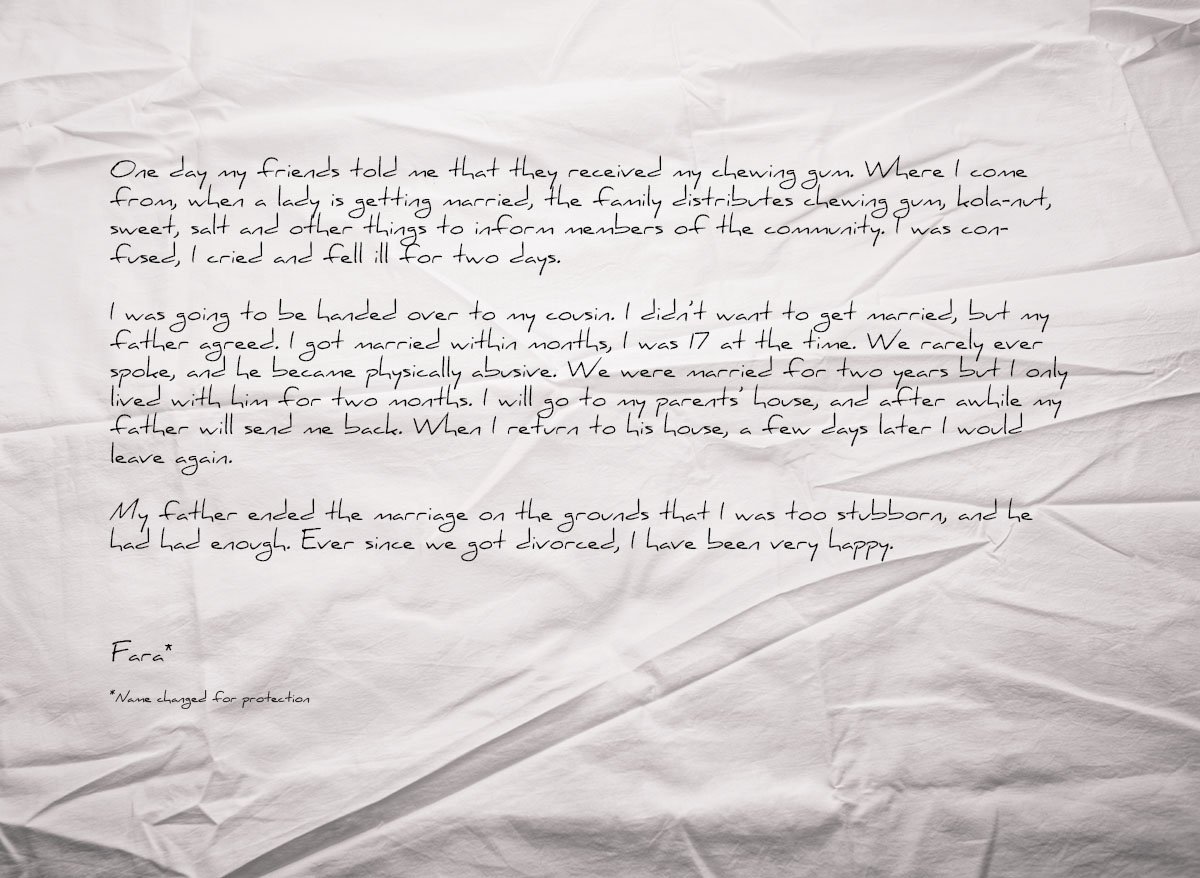 One day my friends told me that they received my chewing gum. Where I come
from, when a lady is getting married, the family distributes chewing gum, kola-nut,
sweet, salt and other things to inform members of the community. I was con-
fused, I cried and fell ill for two days.
I was going to be handed over to my cousin. I didn't want to get married, but my
father agreed. I got married within months, I was 17 at the time. We rarely ever
spoke, and he became physically abusive. We were married for two years but I only
lived with him for two months. I will go to my parents' house, and after awhile my
father will send me back. When I return to his house, a few days later I would
leave again.
My father ended the marriage on the grounds that I was too stubborn, and he
had had enough. Ever since we got divorced, I have been very happy.
Fara*
*Name changed for protection